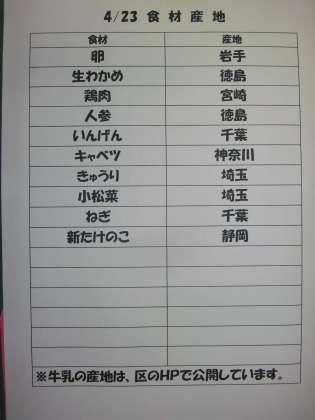 4/23 食材産地
食材 産地
卵 岩手
生わかめ 徳島
鶏肉 宮崎
人参 徳島
いんげん 千葉
キャベツ 神奈川
きゅうり 埼玉
小松菜 埼玉
ねぎ 千葉
新たけのこ 静岡
※牛乳の産地は、区のHPで公開しています。